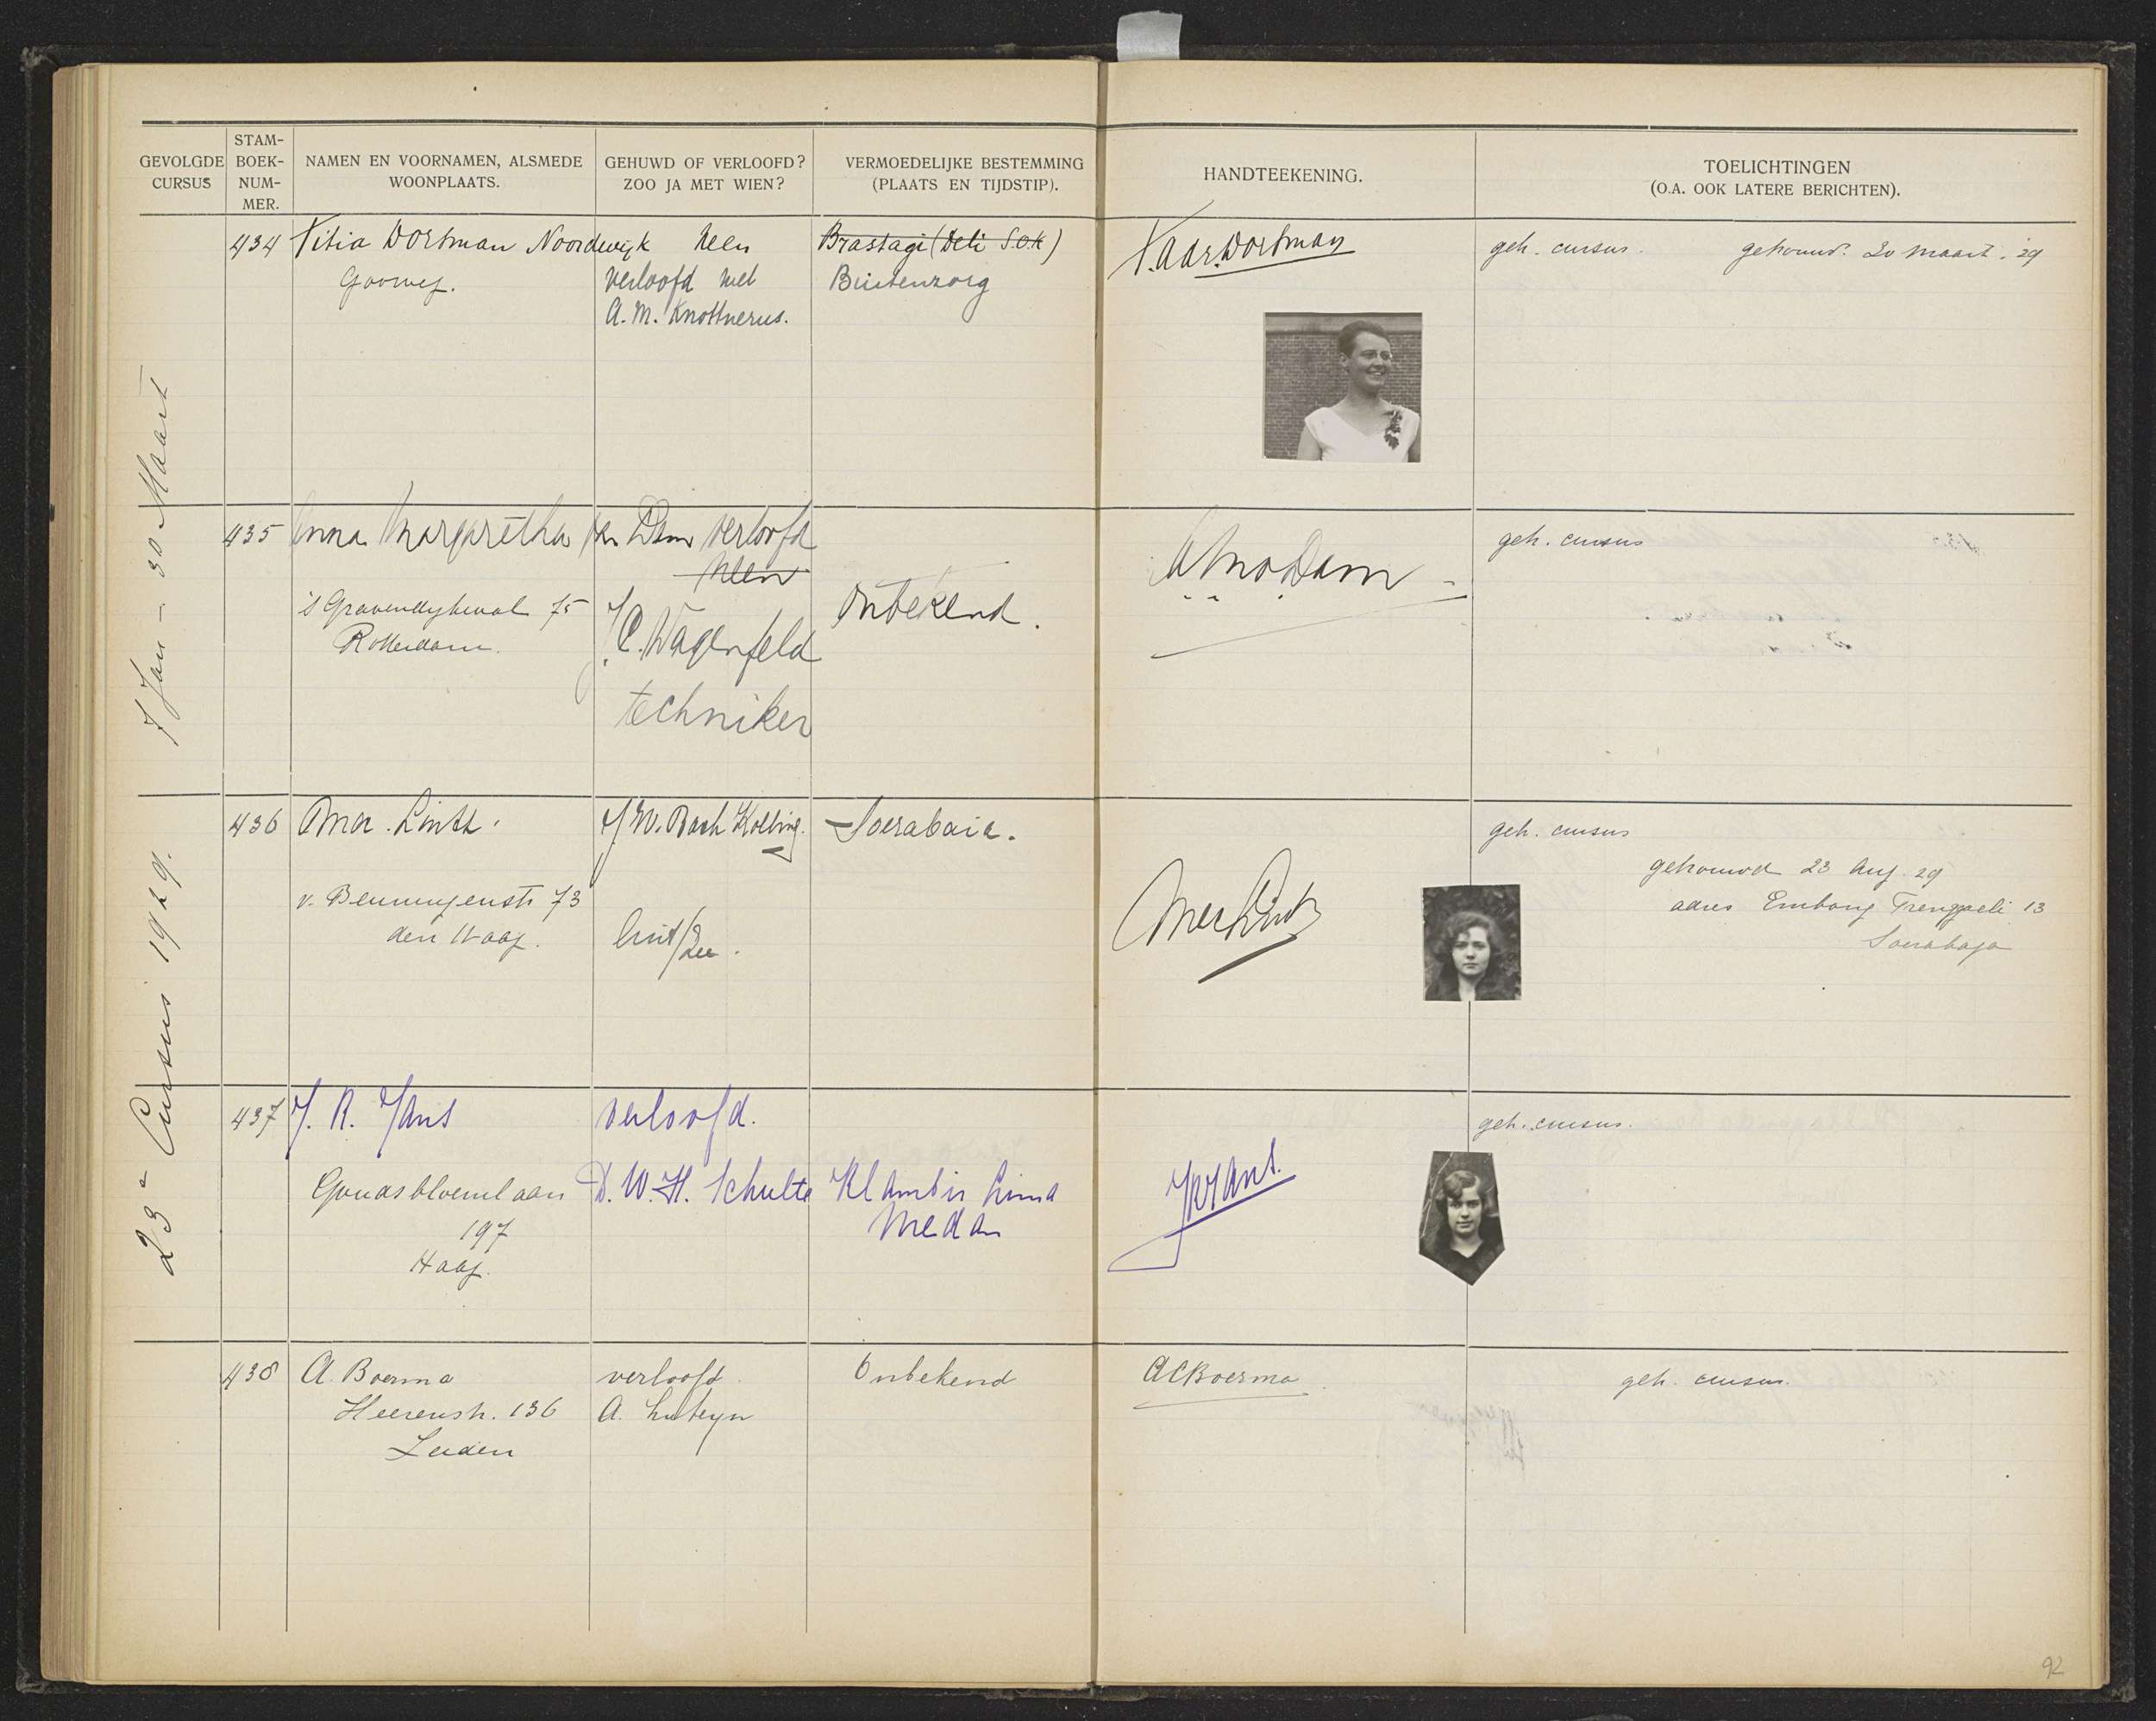 GEVOLGDE CURSUS
STAM-BOEK-NUM-MER.
NAMEN EN VOORNAMEN, ALSMEDE WOONPLAATS.
GEHUWD OF VERLOOFD? ZOO JA MET WIEN?
VERMOEDELIJKE BESTEMMING (PLAATS EN TIJDSTIP).
HANDTEEKENING.
TOELICHTINGEN
(O.A. OOK LATERE BERICHTEN).
23e Cursus 1929. 7 Jan - 30 Maart
434 Titia Dortman Noordwijk Neen Brastagi (Deli S.O.K) T. Dortman geh. cursus. getrouwd. 20 Maart. '29
Gooweg. verloofd met Buitenzorg
A. M. Knottnerus.
435 Anna Margaretha van Dam verloofd geh. cursus
Neen
's Gravendijkwal 75 J.C. Wagenfeld Onbekend.
Rotterdam. techniker
436 J. W. Bosch Kolling. Soerabaia. geh. cursus
getrouwd 23 Aug. 29
v. Beuningenstr 73 adres Embong Trenggoeli 13
den Haag. Luit/Zee. Soerabaja
437 J. R. Jans verloofd. geh. cursus.
Goudsbloemlaan D. W. H. Schulte Klambir Lima JRJans.
197 Medan
Haag.
438 A. Boerma verloofd Onbekend ACBoerma geh. cursus.
Heerenstr. 136 A. Luteyn
Leiden
92